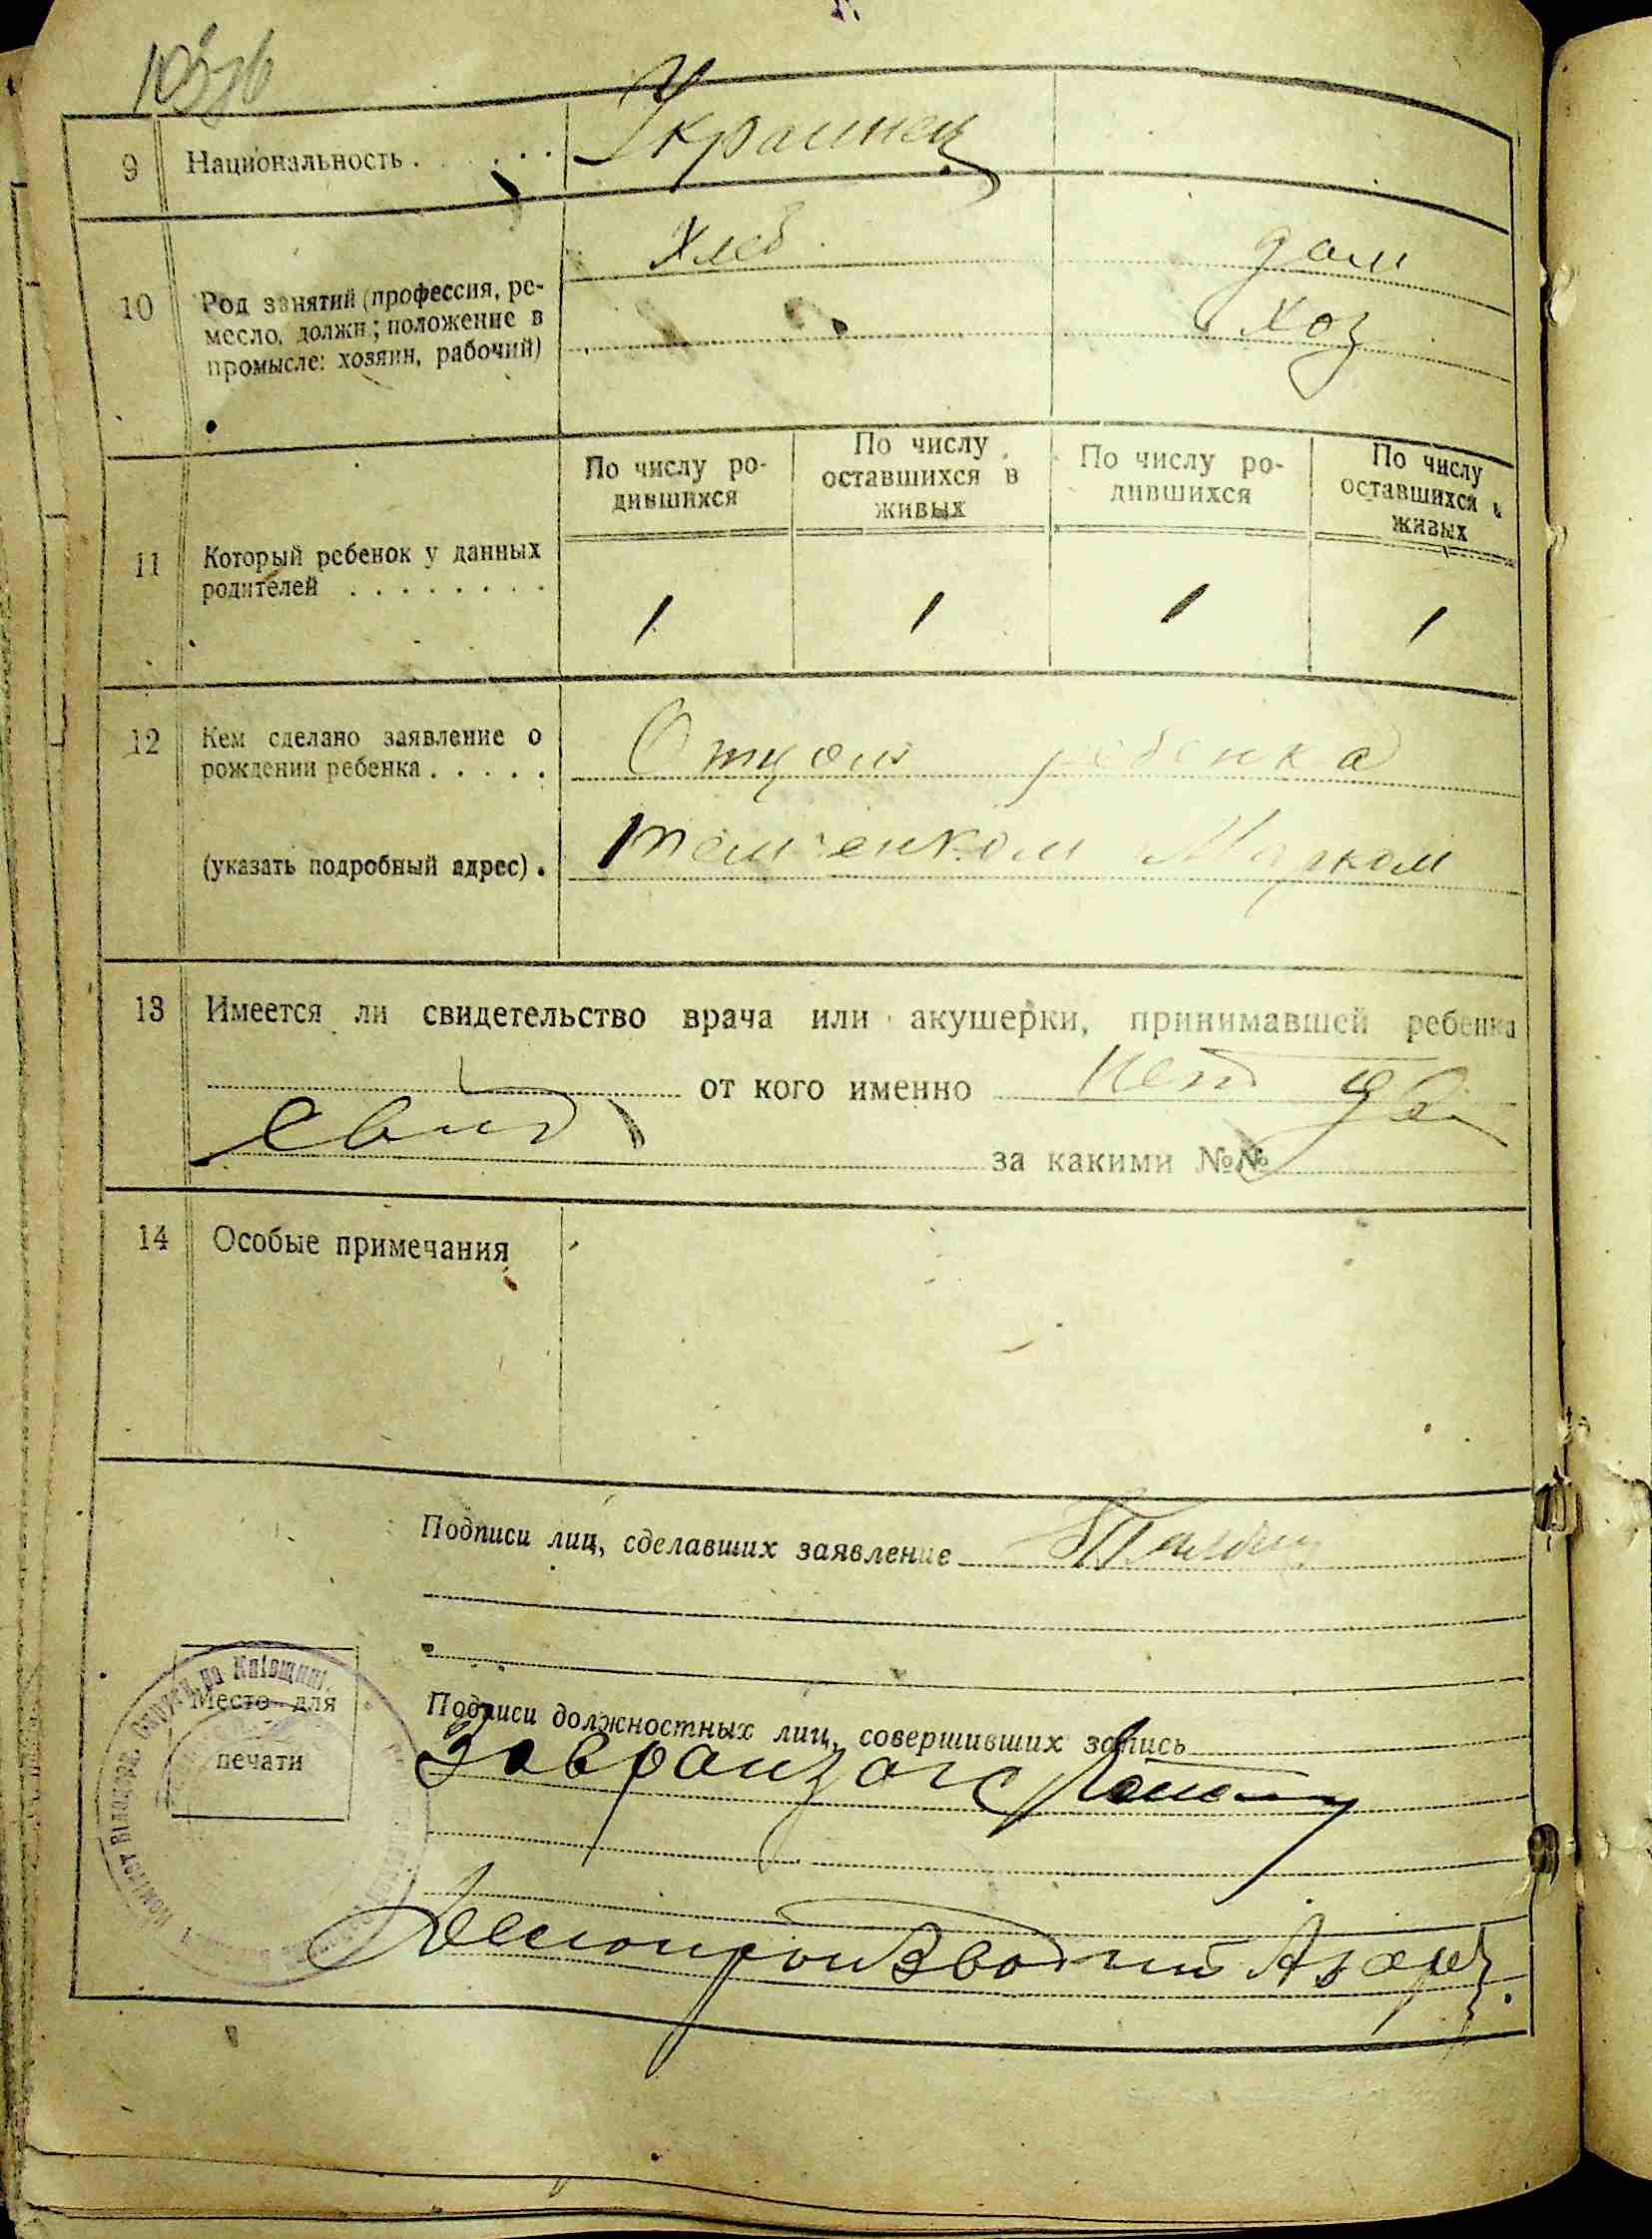 9 Национальность . . . . . . Украинец
10 Род занятий (профессия, ре-
месло, должн.; положение в
промысле: хозяин, рабочий)
Хлеб. дом
хоз
По числу ро-
дившихся
По числу
оставшихся в
живых
По числу ро-
дившихся
По числу
оставшихся в
живых
11 Который ребенок у данных
родителей . . . . . . . .
1 1 1 1
12 Кем сделано заявление о
рождении ребенка . . . . .
Отцом ребенка
(указать подробный адрес) .
Марком
13 Имеется ли свидетельство врача или акушерки, принимавшей ребенка
от кого именно нет
свид за какими №№
14 Особые примечания
Подписи лиц, сделавших заявление
Место для
печати
на Київщині
Подписи должностных лиц, совершивших запись
Завранзагс
Делопроизводит